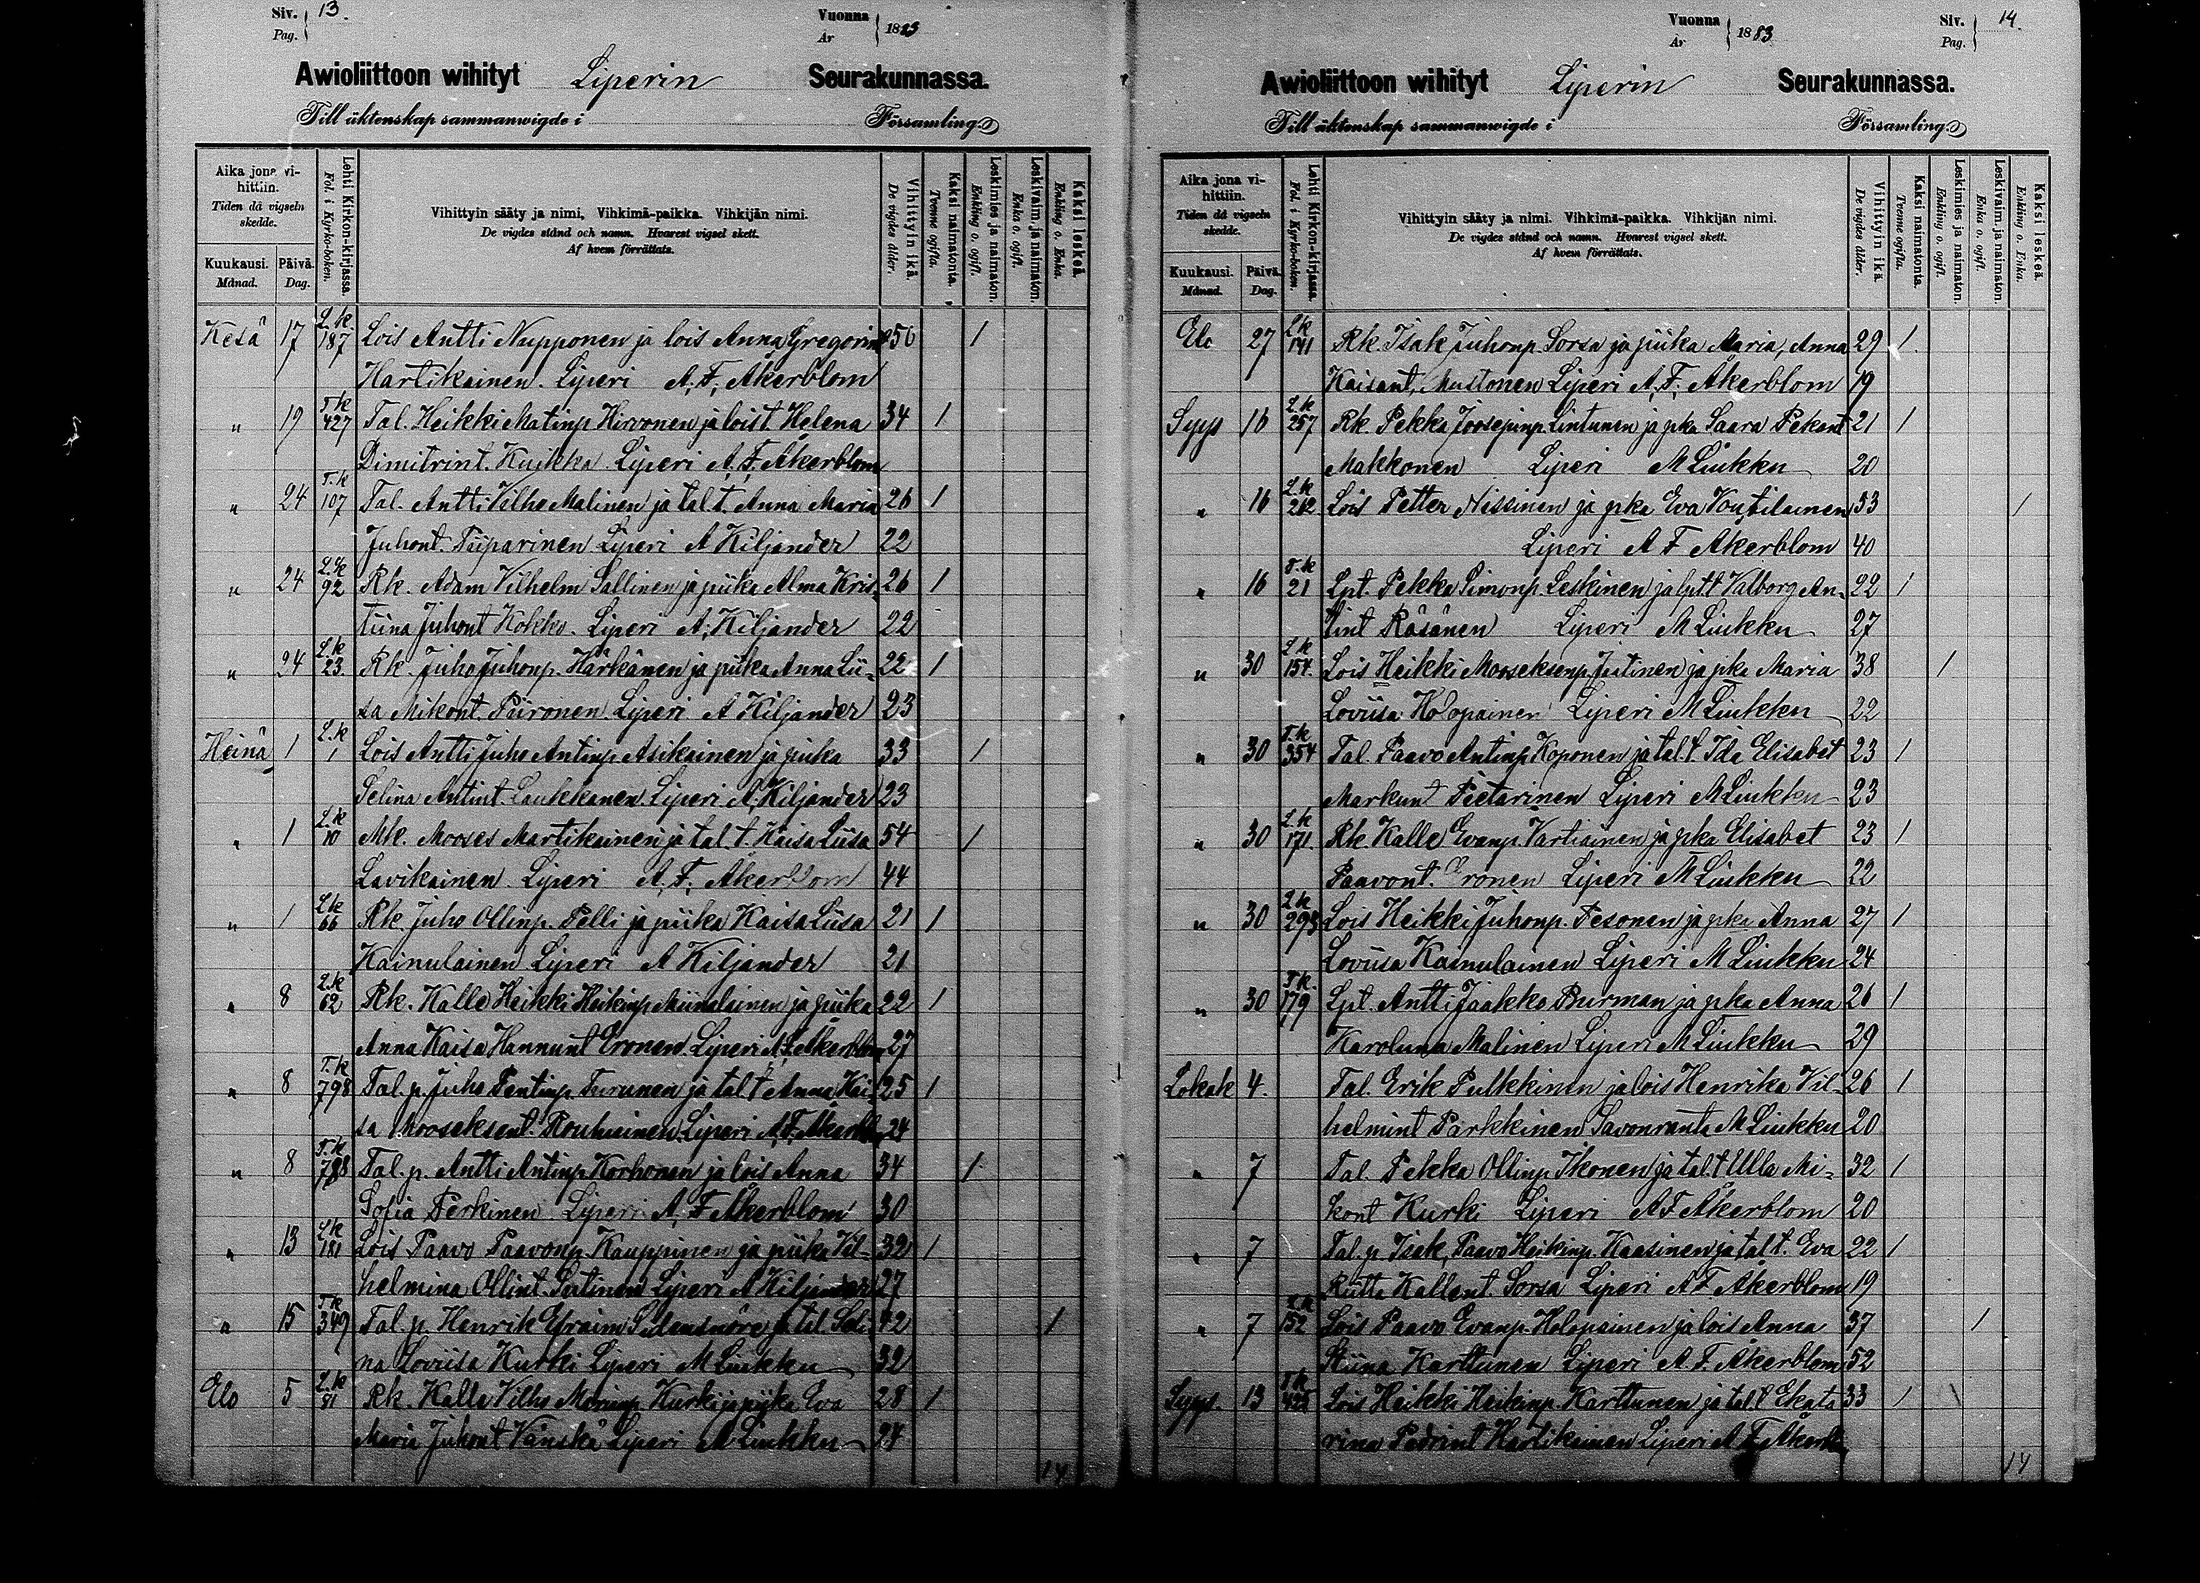 Siv. Pag. 13.
Vuonna År 1883
Awioliittoon wihityt Liperin Seurakunnassa.
Till äktenskap sammanwigde i Församling.
Aika jona vihittiin. Tiden då vigseln skedde.
Kuukausi. Månad. Päivä. Dag.
Lehti Kirkon-kirjassa. Fol. i Kyrko-boken.
Vihittyin sääty ja nimi. Vihkimä-paikka. Vihkijän nimi.
De vigdes stånd och namn. Hvarest vigsel skett.
Af hvem förrättats.
Vihittyin ikä. De vigdes ålder.
Kaksi naimatonta. Tvenne ogifta.
Leskimies ja naimaton. Enkling o. ogift.
Leskivaim. ja naimaton. Enka o. ogift.
Kaksi leskeä. Enkling o. Enka.
Kesä 17 L.k. 187 Lois Antti Nupponen ja lois Anna Gregorint 50 1
Hartikainen. Liperi A. F. Åkerblom
" 19 T.k 427 Tal. Heikki Matinp Hirvonen ja lois t. Helena 34 1
Dimitrint. Kuikka Liperi A. F. Åkerblom
" 24 T.k 107 Tal. Antti Vilho Malinen ja tal. t. Anna Maria 26 1
Juhont. Tiiparinen Liperi A Kiljander 22
" 24 L.k 92 Rk. Adam Vilhelm Sallinen ja piika Alma Kris- 26 1
tiina Juhont Kokko. Liperi A. Kiljander 22
" 24 L.k 23. Rk. Juho Juhonp. Härkänen ja piika Anna Lii- 22 1
sa Mikont. Piironen Liperi A Kiljander 23
Heinä 1 L.k 1 Lois Antti Juho Antinp Asikainen ja piika 33 1
Selina Antint. Laukkanen Liperi A. Kiljander 23
" 1 L.k 10 Mk. Mooses Martikainen ja tal. t. Kaisa Liisa 54 1
Lavikainen. Liperi A. F. Åkerblom 44
" 1 L.k 66 Rk. Juho Ollinp. Pelli ja piika Kaisa Liisa 21 1
Kainulainen Liperi A Kiljander 21
" 8 L.k 62 Rk. Kalle Heikki Heikinp Miinalainen ja piika 22 1
Anna Kaisa Hannunt Eronen Liperi A. F. Åkerblom 27
" 8 T.k 798 Tal. p. Juho Pentinp Turunen ja tal t Anna Kai- 25 1
sa Mooseksent. Rouhiainen Liperi A. F. Åkerbl 24
" 8 T.k 788 Tal. p. Antti Antinp Korhonen ja lois Anna 34 1
Sofia Perkinen Liperi A. F Åkerblom 30
" 13 L.k 181 Lois Paavo Paavonp Kauppinen ja piika Vil- 32 1
helmina Ollint. Liperi A Kiljander 27
" 15 T.k 349 Tal. p Henrik Efraim ja tal. Seli- 42 1
na Loviisa Kurki Liperi M Liukku 32
Elo 5 L.k 81 Rk. Kalle Vilho Kurki ja piika Eva 28 1
Maria Juhont Vänskä Liperi M Liukku 24
14
Siv. Pag. 14.
Vuonna År 1883
Awioliittoon wihityt Liperin Seurakunnassa.
Till äktenskap sammanwigde i Församling.
Aika jona vihittiin. Tiden då vigseln skedde.
Kuukausi. Månad. Päivä. Dag.
Lehti Kirkon-kirjassa. Fol. i Kyrko-boken.
Vihittyin sääty ja nimi. Vihkimä-paikka. Vihkijän nimi.
De vigdes stånd och namn. Hvarest vigsel skett.
Af hvem förrättats.
Vihittyin ikä. De vigdes ålder.
Kaksi naimatonta. Tvenne ogifta.
Leskimies ja naimaton. Enkling o. ogift.
Leskivaim. ja naimaton. Enka o. ogift.
Kaksi leskeä. Enkling o. Enka.
Elo 27 L.k 141 Rk. Isak Juhonp. Sorsa ja piika Maria, Anna 29 1
Kaisant, Mustonen Liperi A. F. Åkerblom 19
Syys 16 L.k 257 Rk. Pekka Joosepinp. Lintunen ja pka Saara Pekant 21 1
Makkonen Liperi M Liukku 20
" 16 L.k 262 Lois Petter Nissinen ja pka Eva Voutilainen 53 1
Liperi A F Åkerblom 40
" 16 T.k 21 Lpt. Pekka Simonp. Leskinen ja lpt. t Valborg An- 22 1
tint Räsänen Liperi M Liukku 27
" 30 L.k 154. Lois Heikki Mooseksenp. ja pka Maria 38 1
Loviisa Holopainen Liperi M Liukku 22
" 30 T.k 354 Tal. Paavo Antinp. Koponen ja tal. t. Ida Elisabet 23 1
Markunt Pietarinen Liperi M Liukku 23
" 30 L.k 171 Rk. Kalle Evanp. Vartiainen ja pka Elisabet 23 1
Paavont. Eronen Liperi M Liukku 22
" 30 L.k 293 Lois Heikki Juhonp. Pesonen ja pka Anna 27 1
Loviisa Kainulainen Liperi M Liukku 24
" 30 T.k. 179 Lpt. Antti Jaakko Burman ja pka Anna 26 1
Karoliina Malinen Liperi M Liukku 29
Lokak 4. Tal. Erik Pulkkinen ja lois Henrika Vil- 26 1
helmint Parkkinen Savonranta M Liukku 20
" 7 Tal. Pekka Ollinp Ikonen ja tal. t Ulla Mi- 32 1
kont Kurki Liperi A F Åkerblom 20
" 7 Tal. p. Isak Paavo Heikinp. Kaasinen ja tal t. Eva 22 1
Riitta Kallent. Sorsa Liperi A. F. Åkerblom 19
" 7 L.k 152 Lois Paavo Evanp. Holopainen ja lois Anna 37 1
Stiina Karttunen Liperi A. F. Åkerblom 52
Syys. 13 T.k Lois Heikki Heikinp. Karttunen ja tal. t Ekata 33 1
rina Pedrint Hartikainen Liperi A F Åkerbl
14